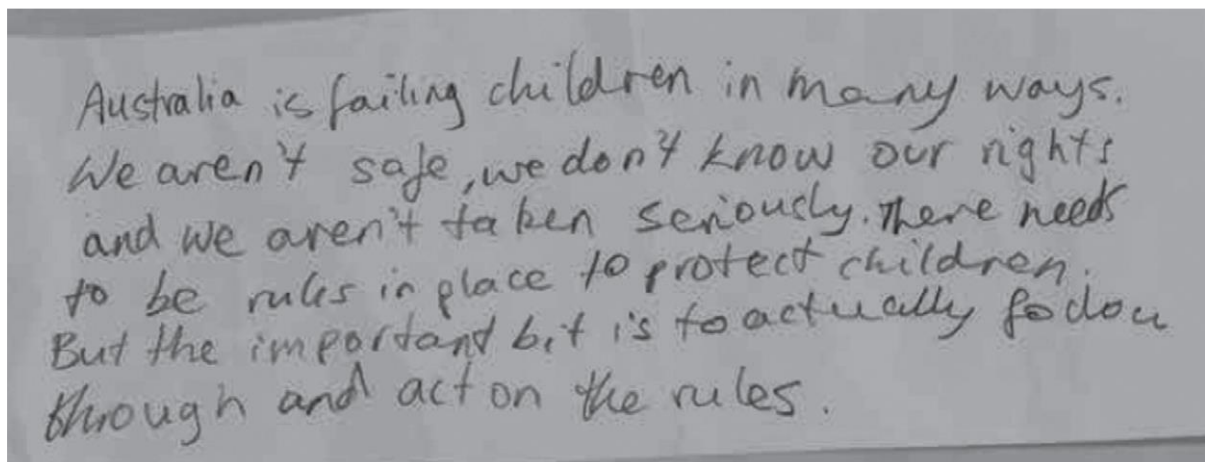 Australia is failing children in many ways.
We aren't safe, we don't know our rights
and we aren't taken seriously. There needs
to be rules in place to protect children.
But the important bit is to actually follow
through and act on the rules.